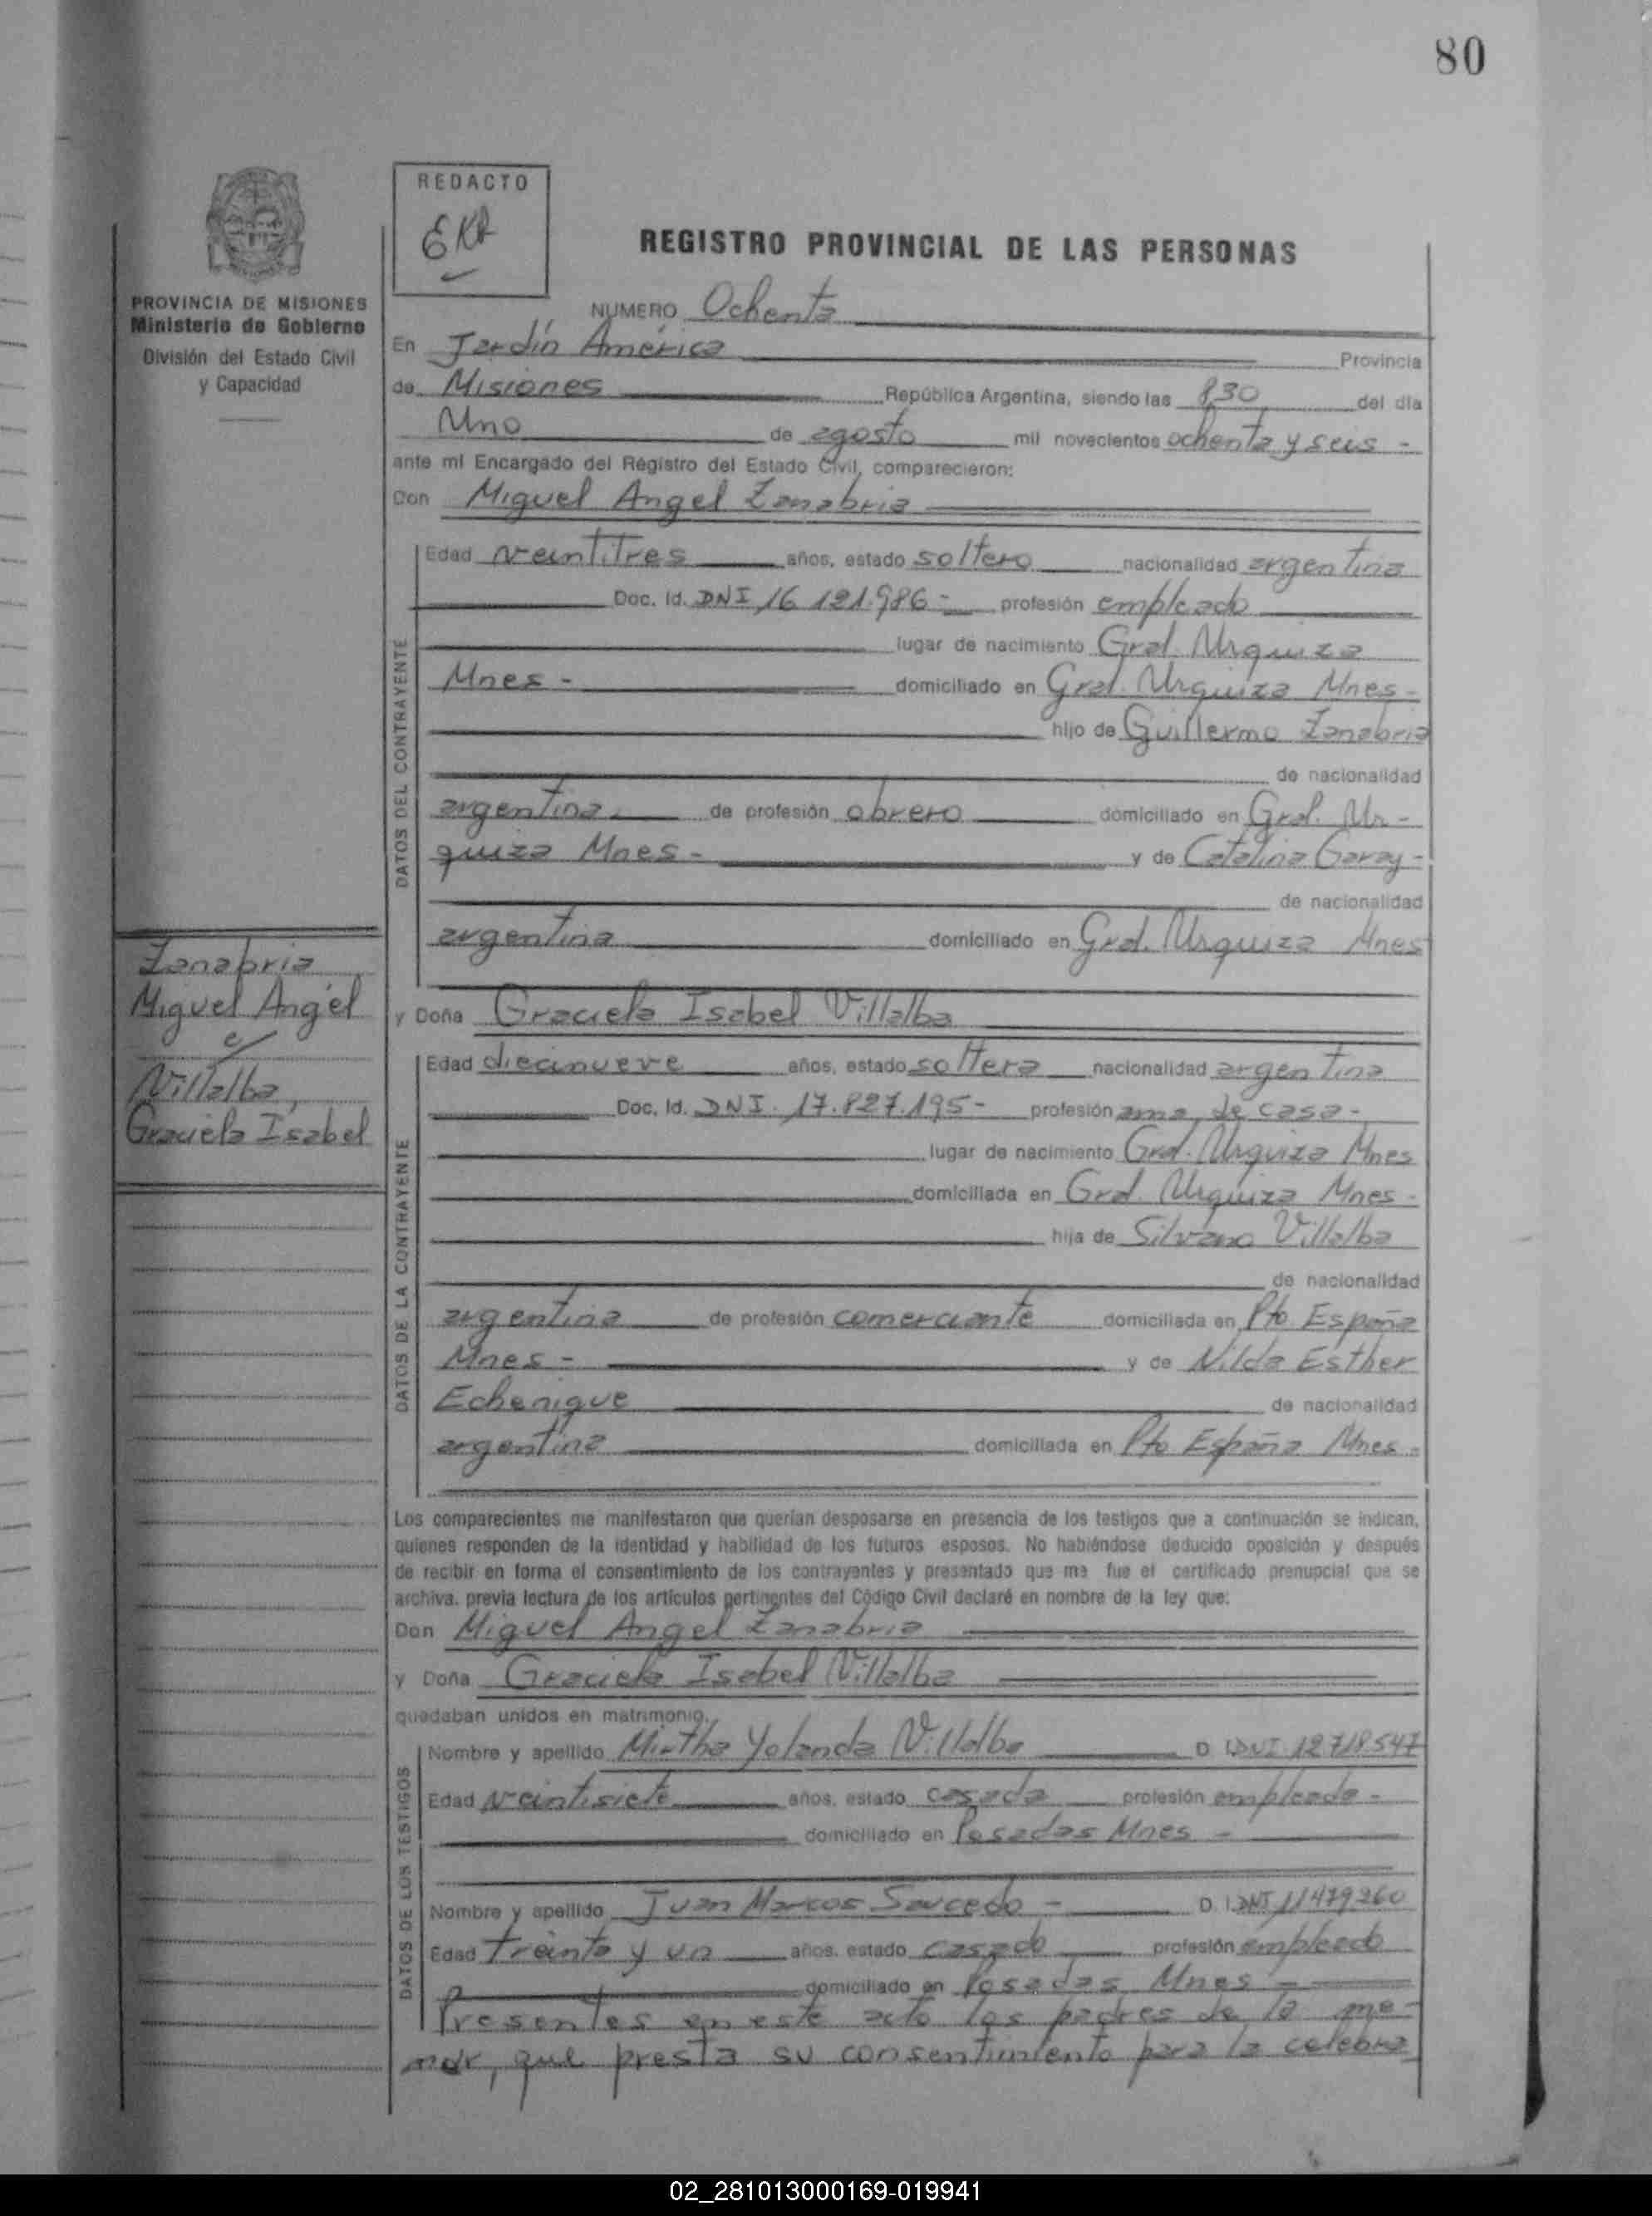 80
REDACTO
EKR
PROVINCIA DE MISIONES
Ministerio de Gobierno
División del Estado Civil
y Capacidad
REGISTRO PROVINCIAL DE LAS PERSONAS
NUMERO Ochenta
En Jardín América Provincia
de Misiones República Argentina, siendo las 8,30 del día
Uno de agosto mil novecientos ochenta y seis -
ante mí Encargado del Registro del Estado Civil, comparecieron:
Don Miguel Angel Zanabria
DATOS DEL CONTRAYENTE
Edad veintitres años, estado soltero nacionalidad argentina
Doc. Id. DNI 16 121.986 - profesión empleado
lugar de nacimiento Gral. Urquiza
Mnes - domiciliado en Gral. Urquiza Mnes -
hijo de Guillermo Zanabria
de nacionalidad
argentina de profesión obrero domiciliado en Gral. Ur-
quiza Mnes - y de Catalina Garay -
de nacionalidad
argentina domiciliado en Gral. Urquiza Mnes
Zanabria
Miguel Angel
c/
Villalba,
Graciela Isabel
y Doña Graciela Isabel Villalba
DATOS DE LA CONTRAYENTE
Edad diecinueve años, estado soltera nacionalidad argentina
Doc. Id. DNI. 17.827.195 - profesión ama de casa -
lugar de nacimiento Gral. Urquiza Mnes
domiciliada en Gral. Urquiza Mnes -
hija de Silvano Villalba
de nacionalidad
argentina de profesión comerciante domiciliada en Pto España
Mnes - y de Nilda Esther
Echenique de nacionalidad
argentina domiciliada en Pto España Mnes -
Los comparecientes me manifestaron que querían desposarse en presencia de los testigos que a continuación se indican,
quienes responden de la identidad y habilidad de los futuros esposos. No habiéndose deducido oposición y después
de recibir en forma el consentimiento de los contrayentes y presentado que me fue el certificado prenupcial que se
archiva, previa lectura de los artículos pertinentes del Código Civil declaré en nombre de la ley que:
Don Miguel Angel Zanabria
y Doña Graciela Isabel Villalba
quedaban unidos en matrimonio.
DATOS DE LOS TESTIGOS
Nombre y apellido Mirtha Yolanda Villalba D. I. DNI 12 718.547
Edad veintisiete años, estado casada profesión empleada -
domiciliado en Posadas Mnes -
Nombre y apellido Juan Marcos Saucedo - D. I. DNI 11479260
Edad treinta y un años, estado casado profesión empleado
domiciliado en Posadas Mnes -
Presentes en este acto los padres de la me-
nor, que presta su consentimiento para la celebra
02_281013000169-019941